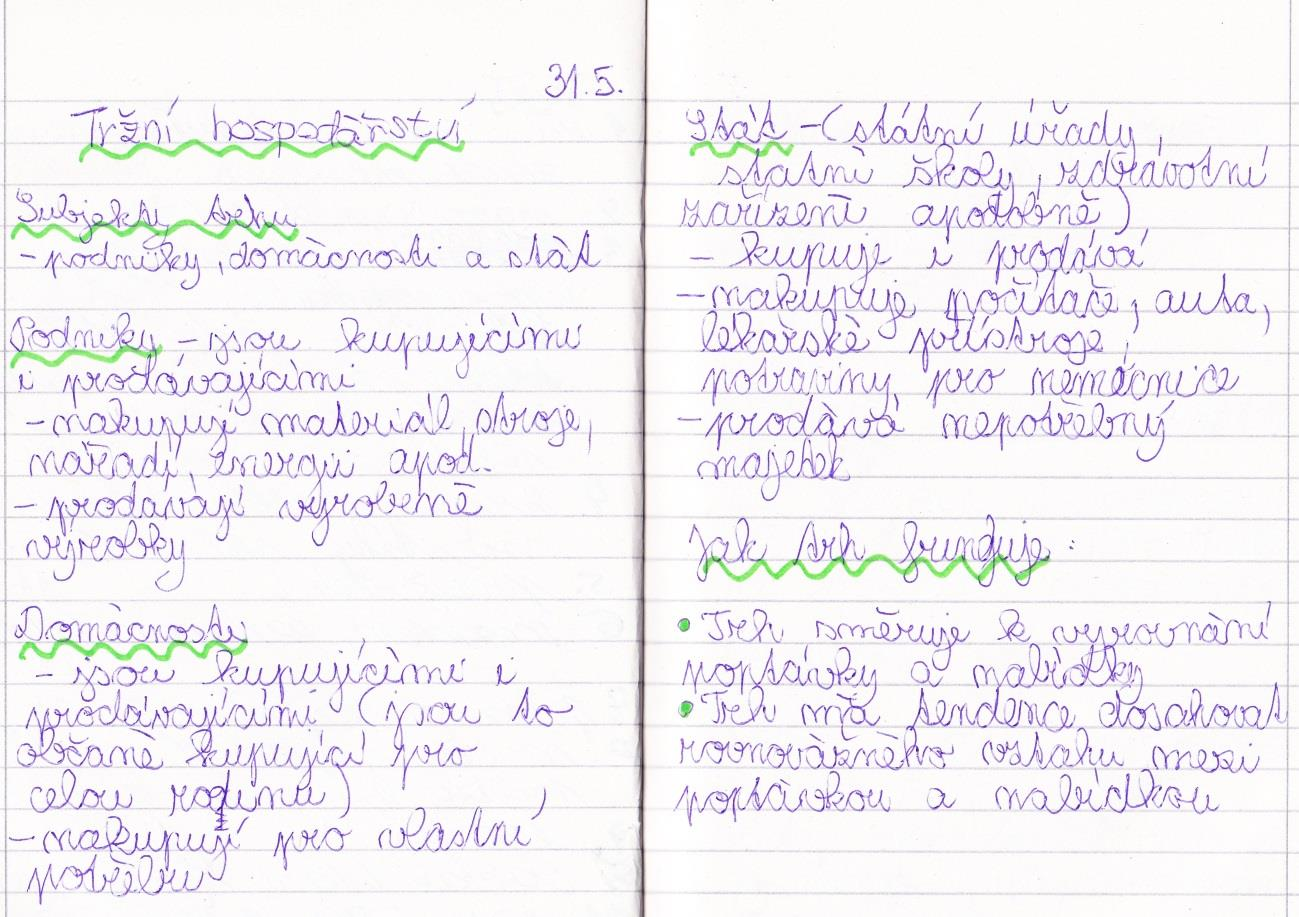 31.5.
Tržní hospodářství
Subjekty trhu
- podniky, domácnosti a stát
Podniky - jsou kupujícími
i prodávajícími
- nakupují materiál, stroje,
nářadí, energii apod.
- prodávají vyrobené
výrobky
Domácnosti
- jsou kupujícími i
prodávajícími (jsou to
občané kupující pro
celou rodinu)
- nakupují pro vlastní
potřebu
Stát - (státní úřady,
státní školy, zdravotní
zařízení apodobně)
- kupuje i prodává
- nakupuje počítače, auta,
lékařské přístroje,
potraviny pro nemocnice
- prodává nepotřebný
majetek
Jak trh funguje:
• Trh směruje k vyrovnání
poptávky a nabídky
• Trh má tendence dosahovat
rovnovážného vztahu mezi
poptávkou a nabídkou